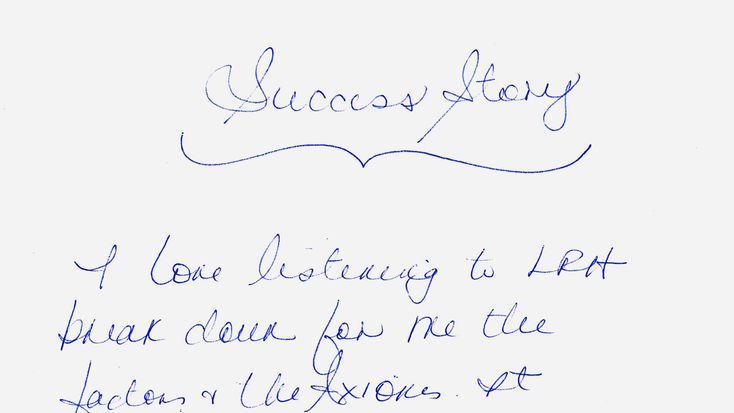 Success Story
I love listening to LRH
break down for me the
factors & the Axioms. It